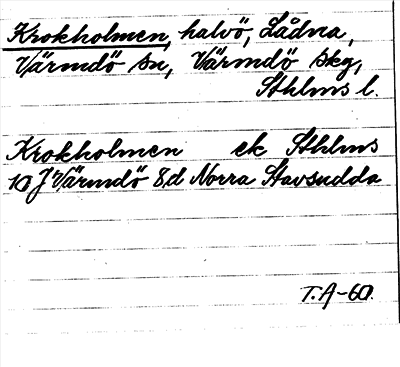 Krokholmen, halvö, Lådna,
Värmdö sn, Värmdö skg,
Sthlms l.
Krokholmen ek Sthlms
10 J Värmdö 8d Norra Stavsudda
T.A-60.